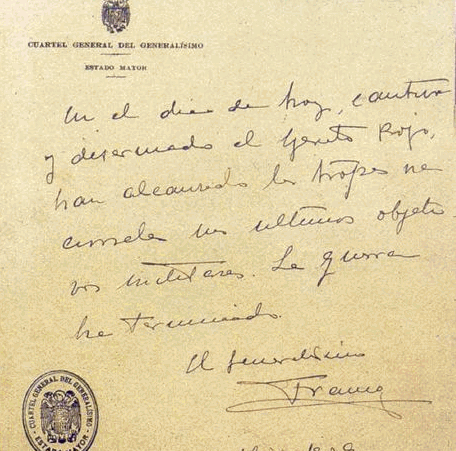 CUARTEL GENERAL DEL GENERALÍSIMO
ESTADO MAYOR
En el día de hoy, cautivo
y desarmado el Ejército Rojo,
han alcanzado las tropas na
cionales sus ultimos objeti
vos militares. La guerra
ha terminado.
El Generalísimo
Franco
CUARTEL GENERAL DEL GENERALÍSIMO
ESTADO MAYOR